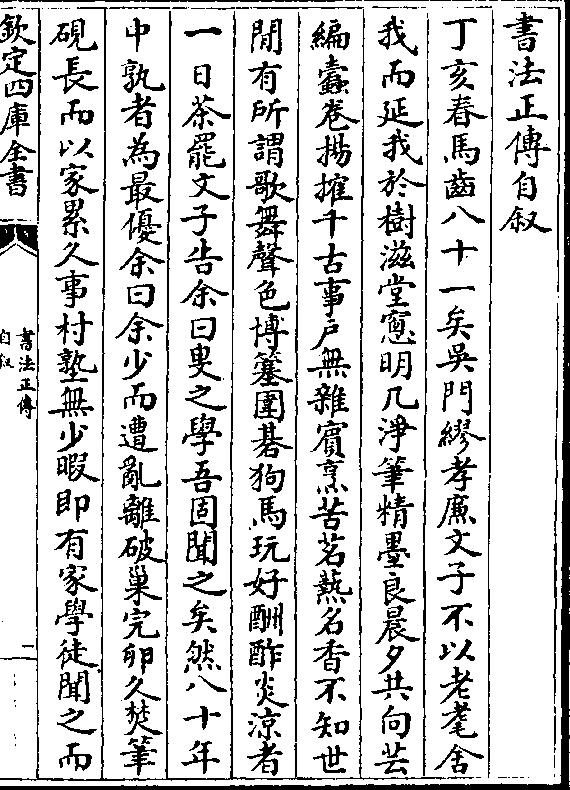 書法正傳自叙
丁亥春馬齒八十一矣吳門繆孝廉文子不以老耄舍
我而延我於樹滋堂窻明几淨筆精墨良晨夕共向芸
編蠧卷揚搉千古事戶無雜賓烹苦茗爇名香不知世
間有所謂歌舞聲色博簺圍碁狗馬玩好酬酢炎涼者
一日茶罷文子告余曰叟之學吾固聞之矣然八十年
中孰者為最優余曰余少而遭亂離破巢完卵久焚筆
硯長而以家累久事村塾無少暇即有家學徒聞之而
欽定四庫全書
書法正傳
自叙
一